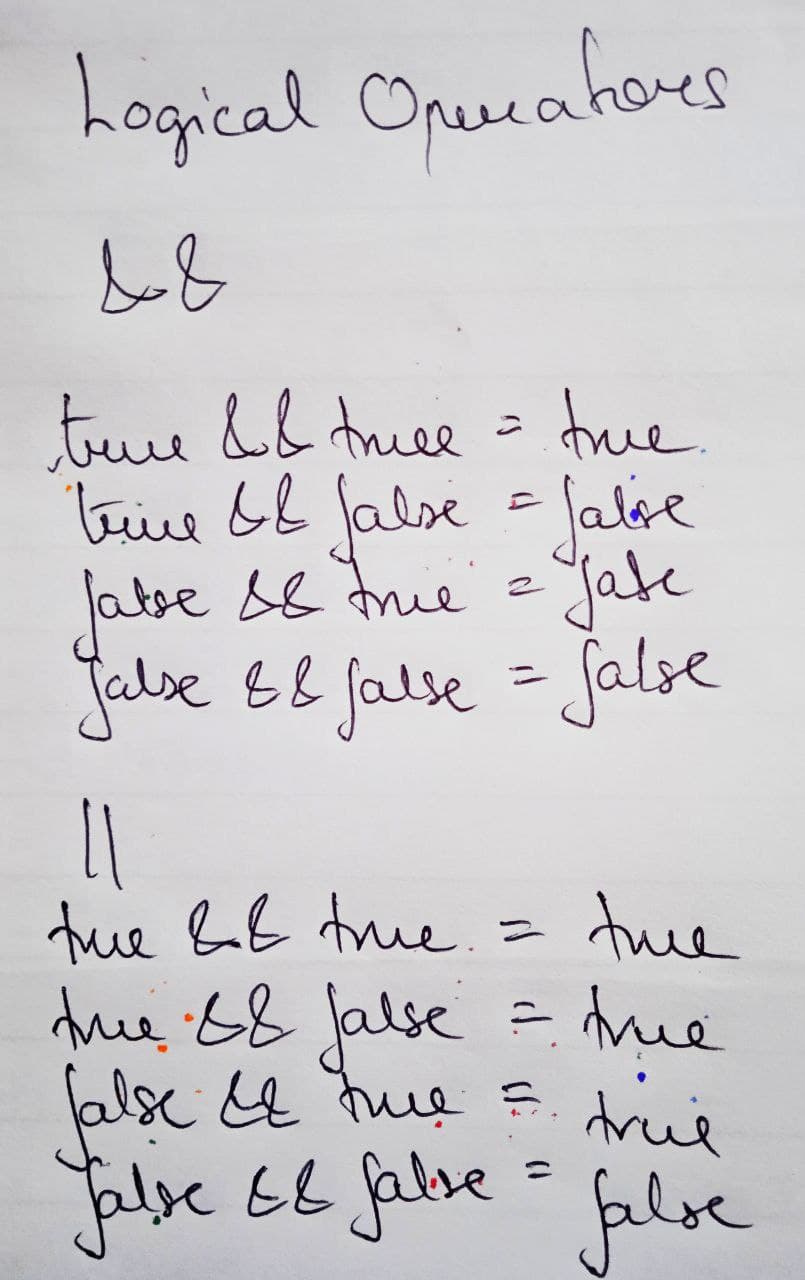 Logical Operators
&&
true && true = true
true && false = false
false && true = false
false && false = false
||
true && true = true
true && false = true
false && true = true
false && false = false